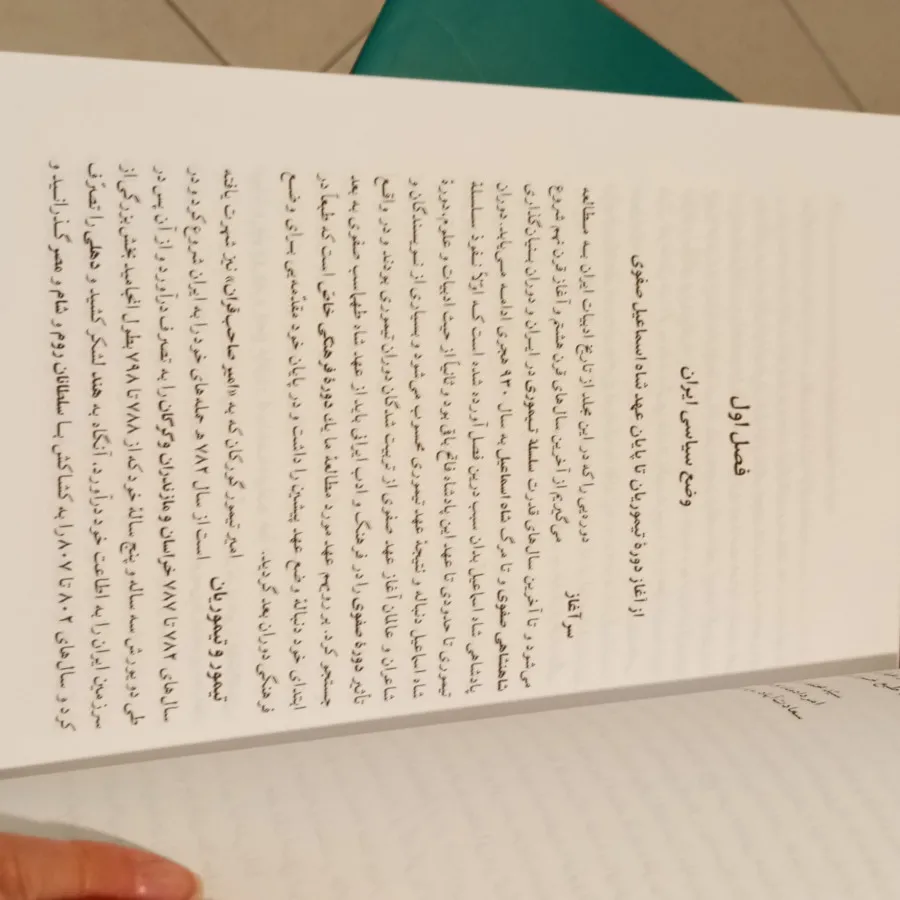 فصل اول
وضع سیاسی ایران
از آغاز دورهٔ تیموریان تا پایان عهد شاه اسماعیل صفوی
سر آغاز
دوره‌یی را که در این مجلد از تاریخ ادبیات ایران به مطالعه
می‌گیریم از آخرین سال‌های قرن هشتم و آغاز قرن نهم شروع
می‌شود و تا آخرین سال‌های قدرت سلسلهٔ تیموری در ایران و دوران بنیان‌گذاری
شاهنشاهی صفوی و تا مرگ شاه اسماعیل به سال ۹۳۰ هجری ادامه می‌یابد. دوران
پادشاهی شاه اسماعیل بدان سبب درین فصل آورده شده است که اولاً نفوذ سلسلهٔ
تیموری تا حدودی تا عهد این پادشاه فاتح باقی بود و ثانیاً از حیث ادبیات و علوم، دورهٔ
شاه اسماعیل دنباله و نتیجهٔ عهد تیموری محسوب می‌شود و بسیاری از نویسندگان و
شاعران و عالمان آغاز عهد صفوی از تربیت شدگان دوران تیموری بودند و در واقع
تأثیر دورهٔ صفوی را در فرهنگ و ادب ایرانی باید از عهد شاه طهماسب صفوی به بعد
جستجو کرد. بر رویهم عهد مورد مطالعهٔ ما یك دورهٔ فرهنگی خاصّی است که طبعاً در
ابتدای خود دنبالهٔ وضع عهد پیشین را داشت و در پایان خود مقدّمه‌یی برای وضع
فرهنگی دوران بعد گردید.
تیمور و تیموریان
امیر تیمور گورگان که به «امیر صاحب‌قران» نیز شهرت یافته
است از سال ۷۸۲ ه‍ حمله‌های خود را به ایران شروع کرد و در
سال‌های ۷۸۲ تا ۷۸۷ خراسان و مازندران و گرگان را به تصرف درآورد و از آن پس در
طی دو یورش سه ساله و پنج سالهٔ خود که از ۷۸۸ تا ۷۹۸ بطول انجامید بخش بزرگی از
سرزمین ایران را به اطاعت خود درآورد، آنگاه به هند لشکر کشید و دهلی را تصرّف
کرد و سال‌های ۸۰۲ تا ۸۰۷ را به کشاکش با سلطانان روم و شام و مصر گذرانید و